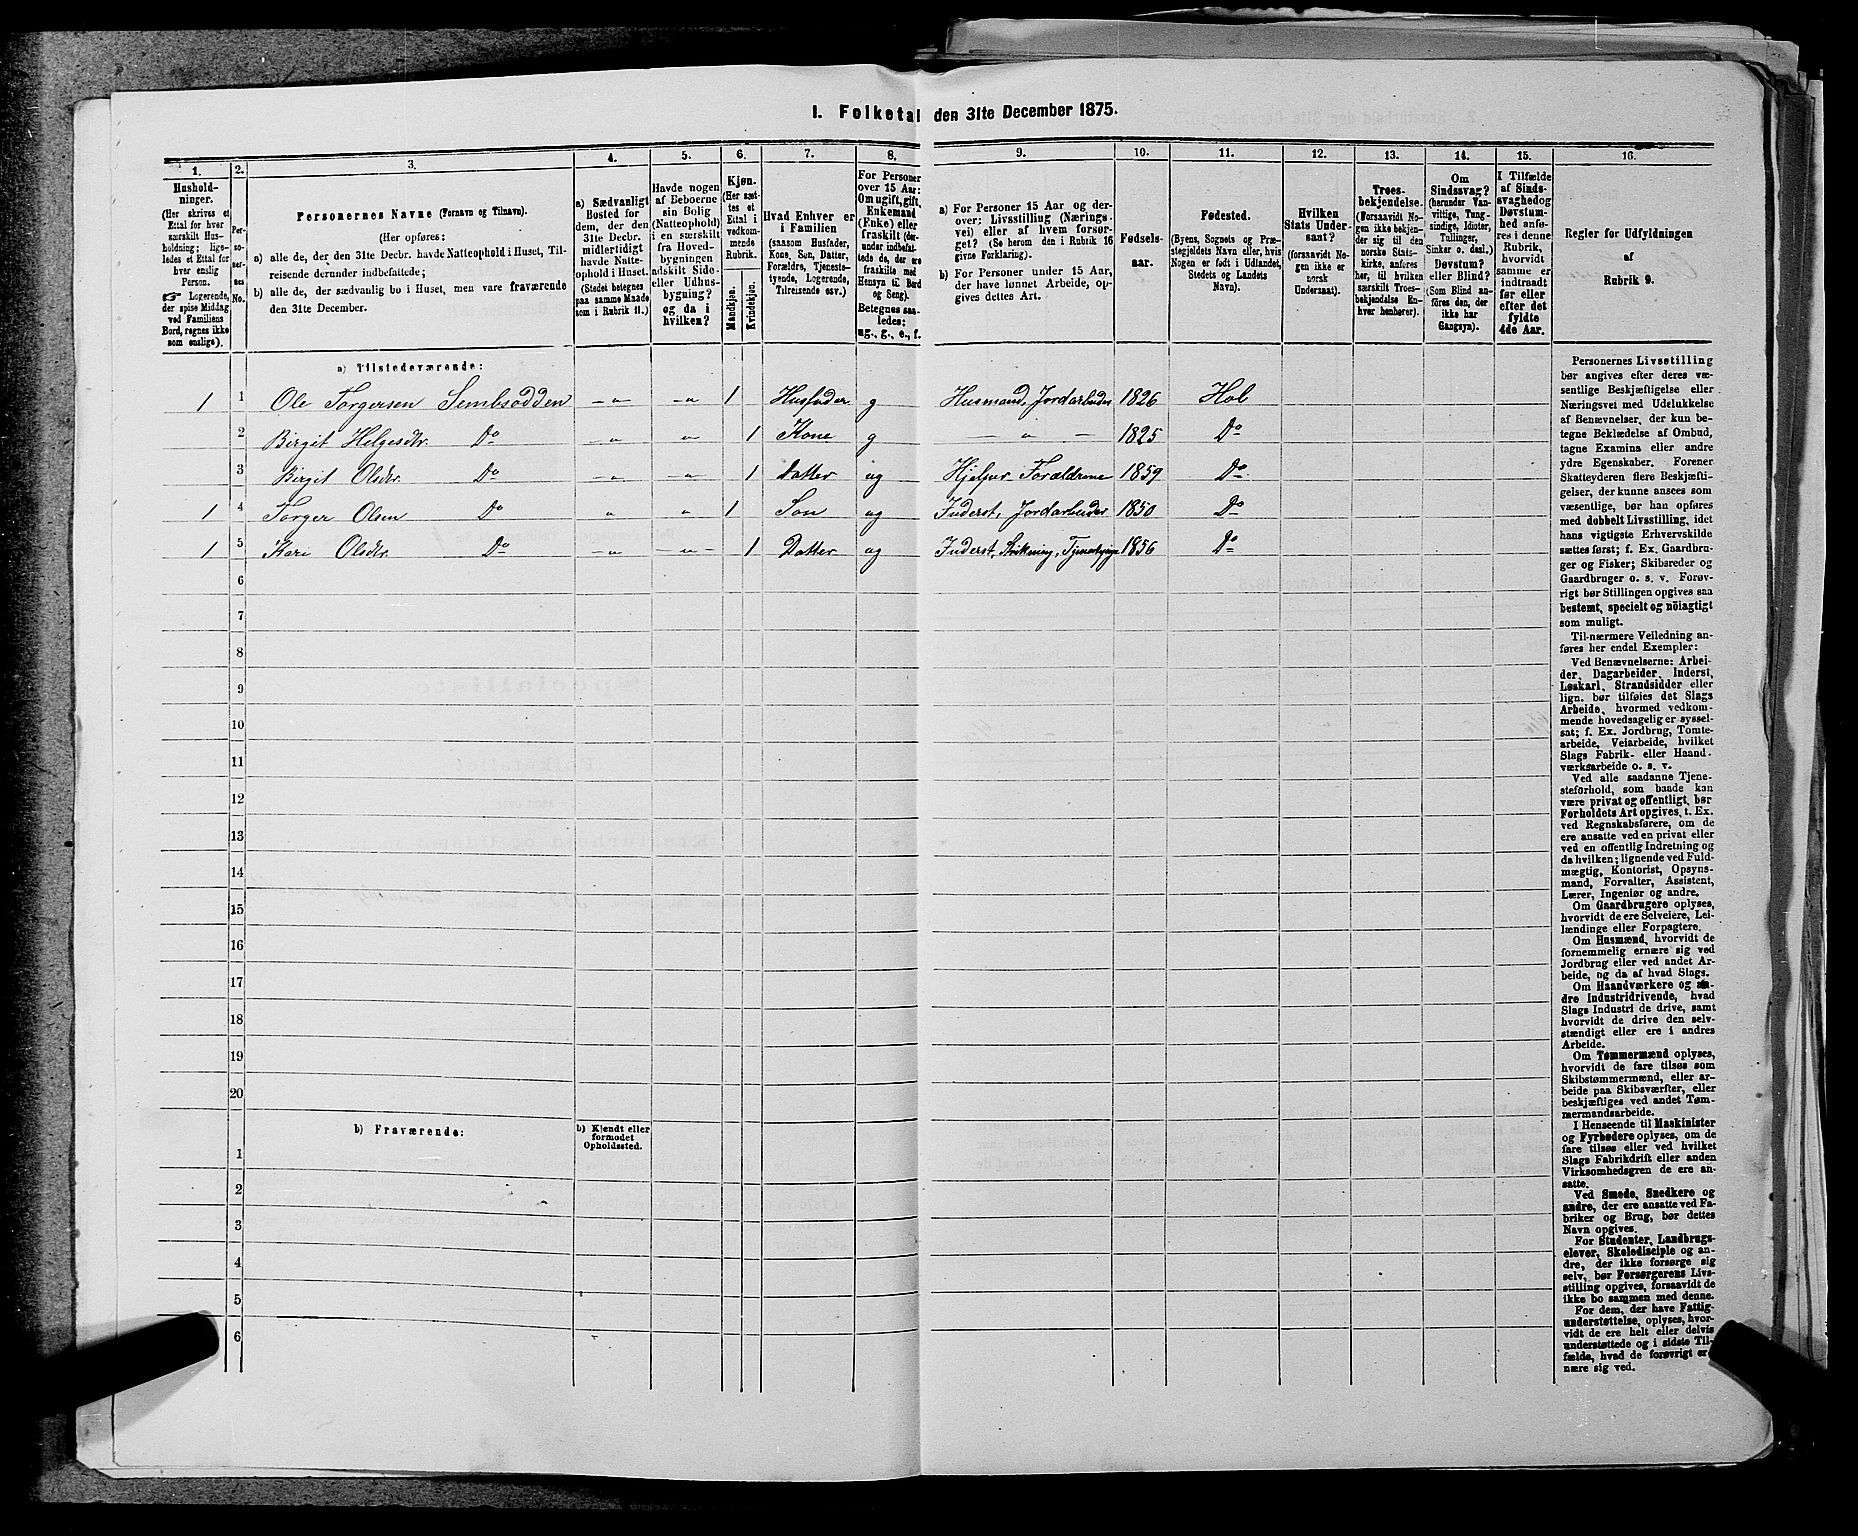 I. Folketal den 31te December 1875.
1.
Hushold-
ninger.
(Her skrives et
Ettal for hver
særskilt Hus-
holdning; lige-
ledes et Ettal for
hver enslig
Person.
☞ Logerende,
der spise Middag
ved Familiens
Bord, regnes ikke
som enslige).
2.
Per-
so-
ner-
nes
No.
3.
Personernes Navne (Fornavn og Tilnavn).
(Her opføres:
a) alle de, der den 31te Decbr. havde Natteophold i Huset, Til-
reisende derunder indbefattede;
b) alle de, der sædvanlig bo i Huset, men vare fraværende
den 31te December.
4.
a) Sædvanligt
Bosted for
dem, der den
31te Decbr.
midlertidigt
havde Natte-
ophold i Huset.
(Stedet betegnes
paa samme Maade
som i Rubrik 11.)
5.
Havde nogen
af Beboerne
sin Bolig
(Natteophold)
i en særskilt
fra Hoved-
bygningen
adskilt Side-
eller Udhus-
bygning?
og da i
hvilken?
6.
Kjøn.
(Her sæt-
tes et
Ettal i
vedkom-
mende
Rubrik.
Mandkjøn.
Kvindekjøn.
7.
Hvad Enhver er
i Familien
(saasom Husfader,
Kone, Søn, Datter,
Forældre, Tjeneste-
tyende, Logerende,
Tilreisende osv.)
8.
For Personer
over 15 Aar:
Om ugift, gift,
Enkemand
(Enke) eller
fraskilt (der-
under indbefat-
tede de, der ere
fraskilte med
Hensyn til Bord
og Seng).
Betegnes saa-
ledes:
ug., g., e., f.
9.
a) For Personer 15 Aar og der-
over: Livsstilling (Nærings-
vei) eller af hvem forsør-
get? (Se herom den i Rubrik 16
givne Forklaring).
b) For Personer under 15 Aar,
der have lønnet Arbeide, op-
gives dettes Art.
10.
Fødsels-
aar.
11.
Fødested.
(Byens, Sognets og Præ-
stegjeldets Navn eller, hvis
Nogen er født i Udlandet,
Stedets og Landets
Navn).
12.
Hvilken
Stats Under-
saat?
(forsaavidt No-
gen ikke er
norsk
Undersaat).
13.
Troes-
bekjendelse.
(Forsaavidt No-
gen ikke bekjen-
der sig til den
norske Stats-
kirke, anføres
her, til hvilken
særskilt Troes-
bekjendelse En-
hver henhører).
14.
Om
Sindssvag?
(herunder Van-
vittige, Tung-
sindige, Idioter,
Tullinger,
Sinker o. desl.)
Døvstum?
eller Blind?
(Som Blind an-
føres den, der
ikke har
Gangsyn).
15.
I Tilfælde
af Sinds-
svaghed og
Døvstum-
hed anfø-
res i denne
Rubrik,
hvorvidt
samme er
indtraadt
før eller
efter det
fyldte
4de Aar.
16.
Regler for Udfyldningen
af
Rubrik 9.
a) Tilstedeværende:
1 1 Ole Torgersen Sembsødden — „ — — „ — 1 Husfader g Husmand, Jordarbeider 1826 Hol
2 Birgit Helgesdtr. Do — „ „ 1 Kone g — „ — 1825 Do
3 Birgit Olsdtr. Do — „ — — „ — 1 Datter ug Hjelper Forældrene 1859 Do
1 4 Torger Olsen Do „ „ 1 Søn ug Inderst, Jordarbeider 1850 Do
1 5 Kari Olsdtr. Do — „ — — „ — 1 Datter ug Inderst, Strikning, 1856 Do
6
7
8
9
10
11
12
13
14
15
16
17
18
19
20
b) Fraværende:
b) Kjendt eller
formodet
Opholdssted.
1
2
3
4
5
6
Personernes Livsstilling
bør angives efter deres væ-
sentlige Beskjæftigelse eller
Næringsvei med Udelukkelse
af Benævnelser, der kun be-
tegne Beklædelse af Ombud,
tagne Examina eller andre
ydre Egenskaber. Forener
Skatteyderen flere Beskjæfti-
gelser, der kunne ansees som
væsentlige, bør han opføres
med dobbelt Livsstilling, idet
hans vigtigste Erhvervskilde
sættes først; f. Ex. Gaardbru-
ger og Fisker; Skibsreder og
Gaardbruger o. s. v. Forøv-
rigt bør Stillingen opgives saa
bestemt, specielt og nöiagtigt
som muligt.
Til nærmere Veiledning an-
føres her endel Exempler:
Ved Benævnelserne: Arbei-
der, Dagarbeider, Inderst,
Løskarl, Strandsidder eller
lign. bør tilføies det Slags
Arbeide, hvormed vedkom-
mende hovedsagelig er syssel-
sat; f. Ex. Jordbrug, Tomte-
arbeide, Veiarbeide, hvilket
Slags Fabrik- eller Haand-
værksarbeide o. s. v.
Ved alle saadanne Tjene-
steforhold, som baade kan
være privat og offentligt, bør
Forholdets Art opgives, t. Ex.
ved Regnskabsførere, om de
ere ansatte ved en privat eller
ved en offentlig Indretning og
da hvilken; lignende ved Fuld-
mægtig, Kontorist, Opsyns-
mand, Forvalter, Assistent,
Lærer, Ingeniør og andre.
Om Gaardbrugere oplyses,
hvorvidt de ere Selveiere, Lei-
lændinge eller Forpagtere.
Om Husmænd, hvorvidt de
fornemmelig ernære sig ved
Jordbrug eller ved andet Ar-
beide, og da af hvad Slags.
Om Haandværkere og an-
dre Industridrivende, hvad
Slags Industri de drive, samt
hvorvidt de drive den selv-
stændigt eller ere i andres
Arbeide.
Om Tømmermænd oplyses,
hvorvidt de fare tilsøs som
Skibstømmermænd, eller ar-
beide paa Skibsværfter, eller
beskjæftiges ved andet Tøm-
mermandsarbeide.
I Henseende til Maskinister
og Fyrbødere oplyses, om de
fare tilsøs eller ved hvilket
Slags Fabrikdrift eller anden
Virksomhedsgren de ere an-
satte.
Ved Smede, Snedkere og
andre, der ere ansatte ved Fa-
briker og Brug, bør dettes
Navn opgives.
For Studenter, Landbrugs-
elever, Skoledisciple og an-
dre, der ikke forsørge sig
selv, bør Forsørgerens Livs-
stilling opgives, forsaavidt de
ikke bo sammen med denne.
For dem, der have Fattig-
understøttelse, oplyses, hvor-
vidt de ere helt eller delvis
understøttede og i sidste Til-
fælde, hvad de forøvrigt er-
nære sig ved.